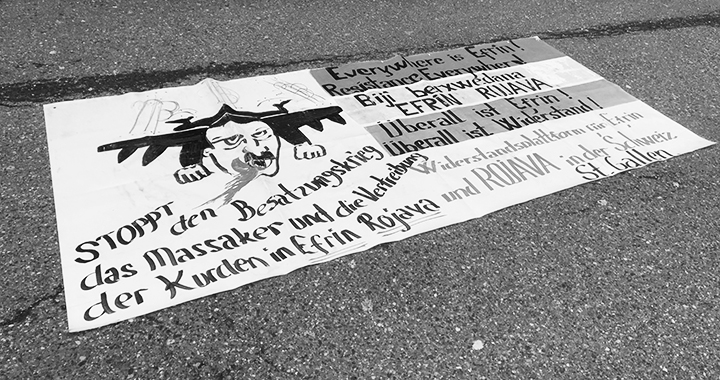 Everywhere is Efrin!
Resistance Everywhere!
Biji berxwedana
EFRIN ROJAVA
Überall ist Efrin!
Überall ist Widerstand!
Widerstandsplattform für Efrin
und ROJAVA in der Schweiz
St. Gallen
STOPPT
den Besatzungskrieg
das Massaker und die Vertreibung
der Kurden in Efrin Rojava